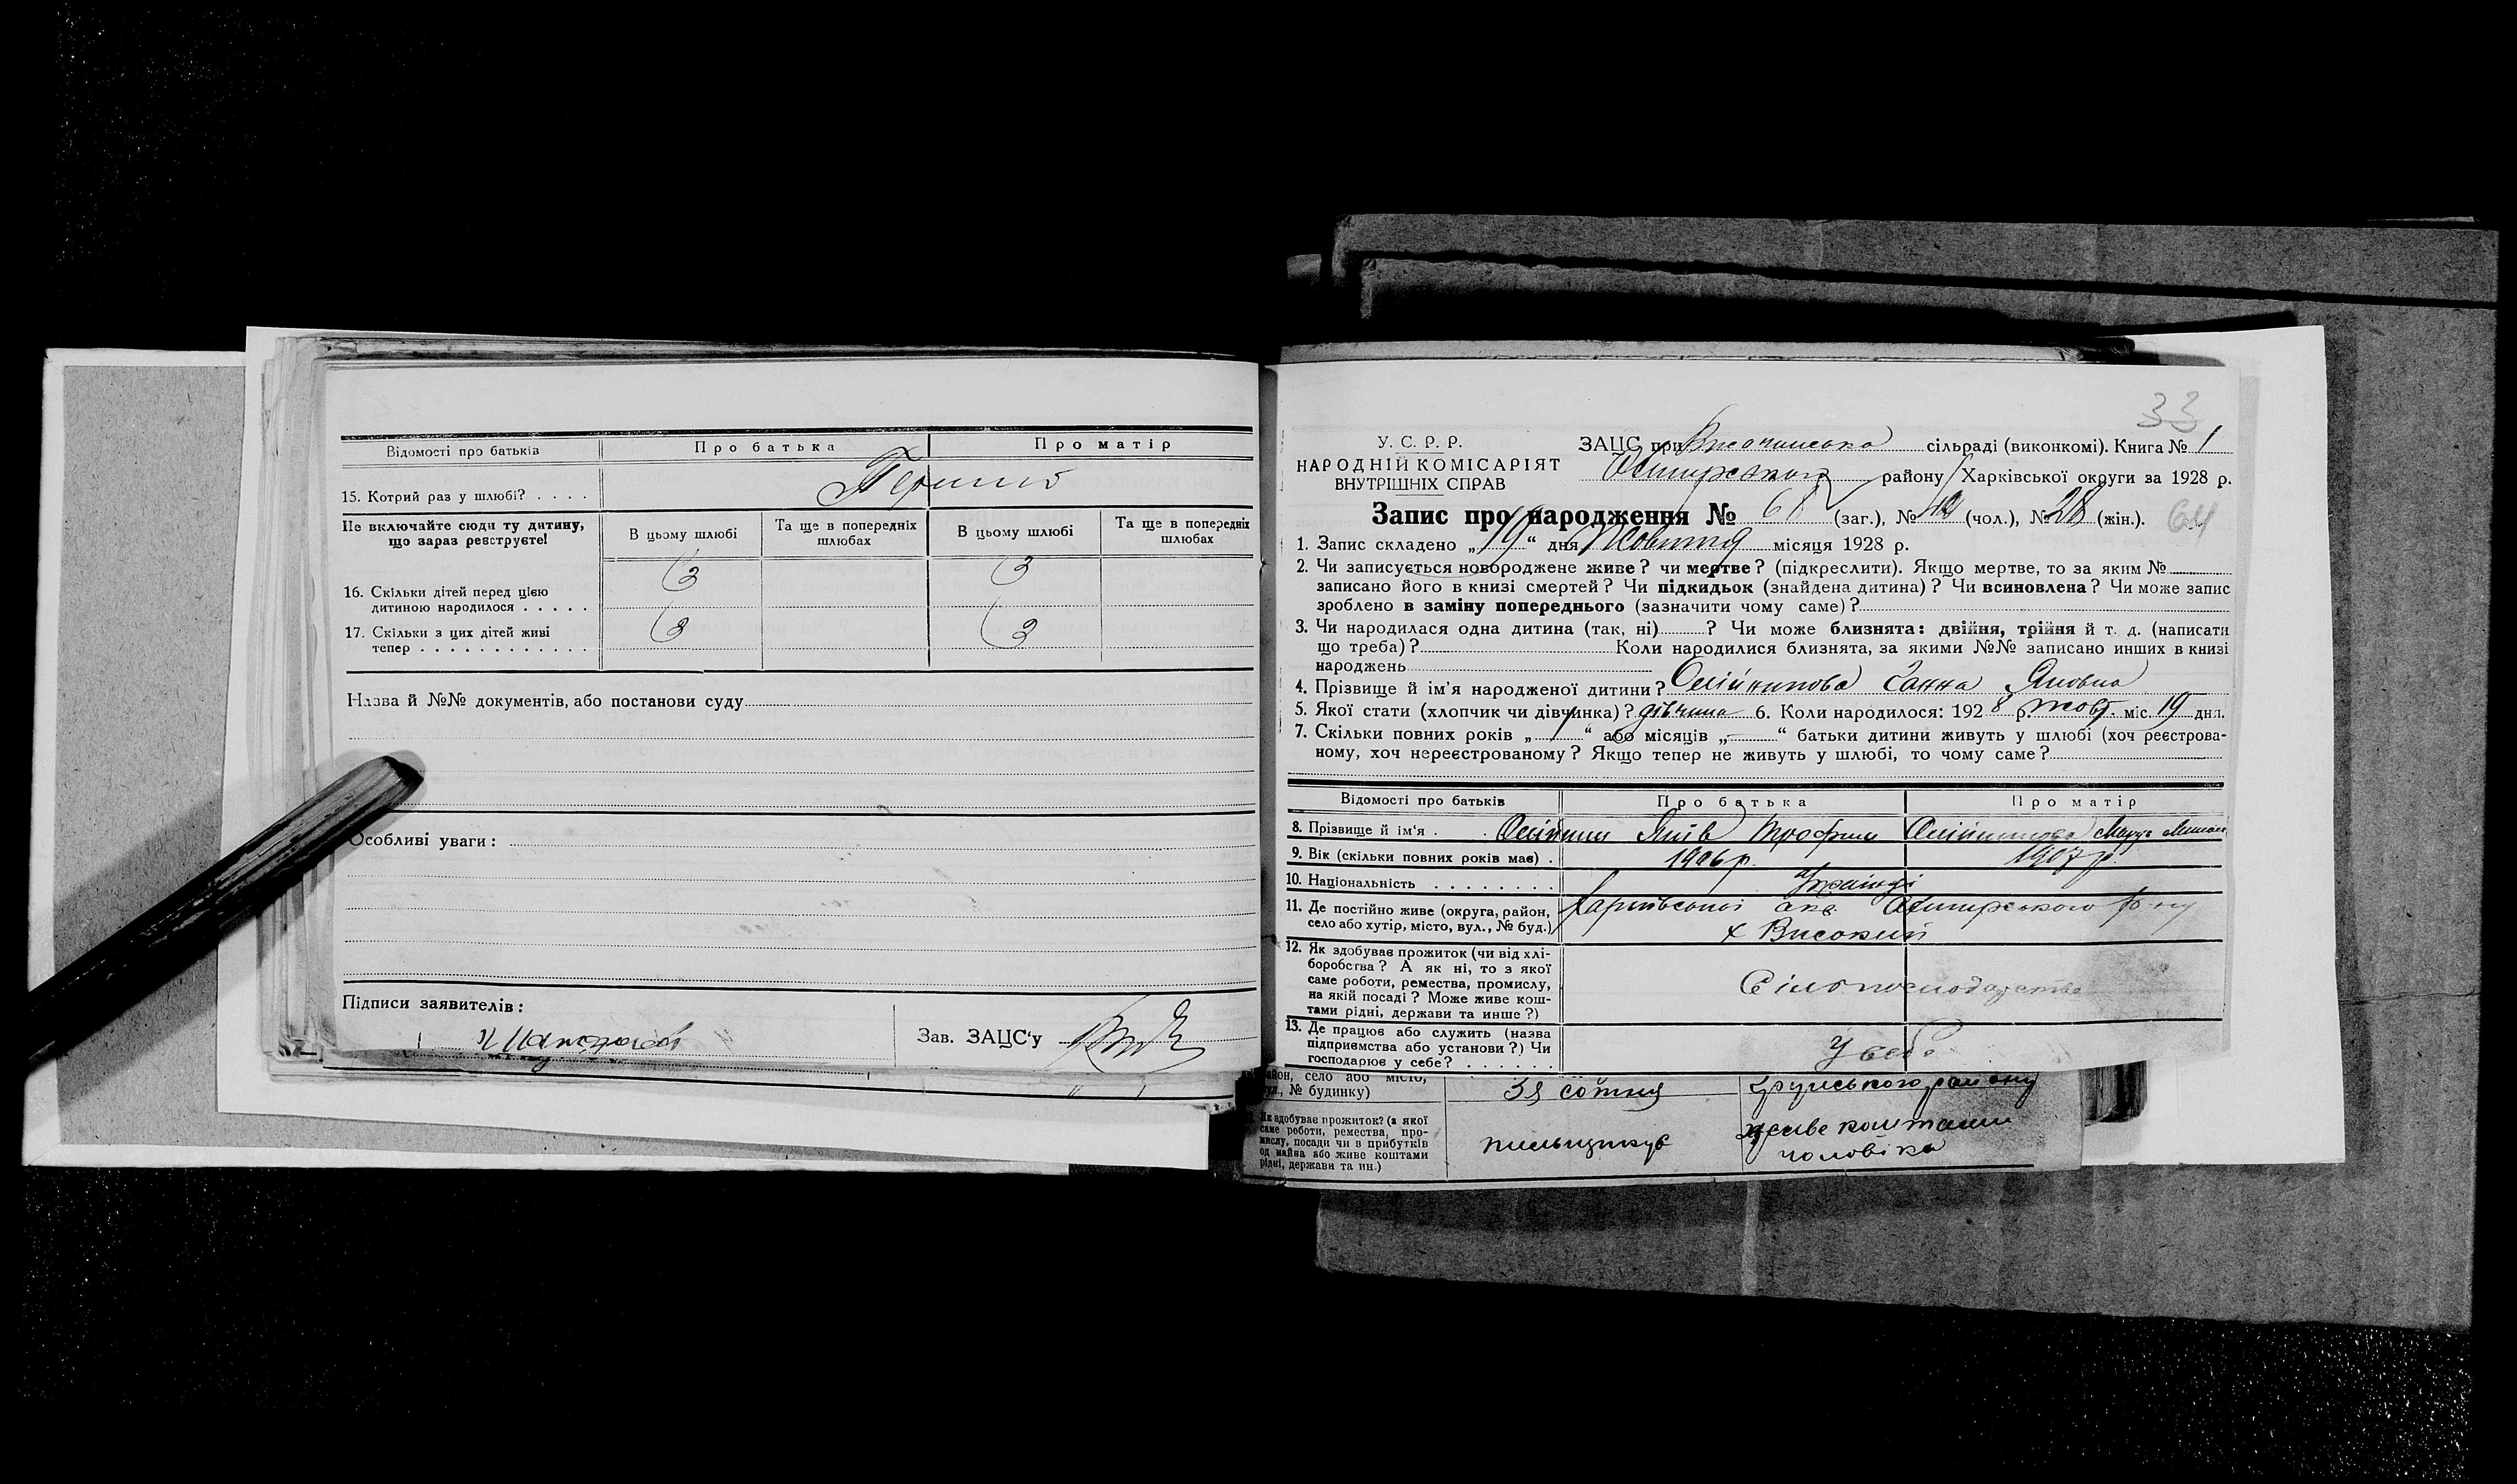 Відомості про батьків
Про батька
Про матір
15. Котрий раз у шлюбі? . . . .
Перший
Не включайте сюди ту дитину, що зараз реєструєте!
В цьому шлюбі
Та ще в попередніх шлюбах
В цьому шлюбі
Та ще в попередніх шлюбах
16. Скільки дітей перед цією
дитиною народилося . . . . .
3 3
17. Скільки з цих дітей живі
тепер . . . . . . . . . . . .
3 3
Назва й №№ документів, або постанови суду
Особливі уваги:
Підписи заявителів:
Зав. ЗАЦС‘у
33
У. С. Р. Р.
НАРОДНІЙ КОМІСАРІЯТ
ВНУТРІШНІХ СПРАВ
ЗАЦС при сільраді (виконкомі). Книга № 1
району Харківської округи за 1928 р.
Запис про народження № 68 (заг.), № (чол.), № 28 (жін.).
64
1. Запис складено „19“ дня Жовтня місяця 1928 р.
2. Чи записується новороджене живе? чи мертве? (підкреслити). Якщо мертве, то за яким №
записано його в книзі смертей? Чи підкидьок (знайдена дитина)? Чи всиновлена? Чи може запис
зроблено в заміну попереднього (зазначити чому саме)?
3. Чи народилася одна дитина (так, ні) ? Чи може близнята: двійня, трійня й т. д. (написати
що треба)? Коли народилися близнята, за якими №№ записано инших в книзі
народжень
4. Прізвище й ім’я народженої дитини? Олійникова Ганна Яковна
5. Якої стати (хлопчик чи дівчинка)? дівчина 6. Коли народилося: 1928 р. жовт. міс. 19 дня.
7. Скільки повних років „ “ або місяців „—“ батьки дитини живуть у шлюбі (хоч реєстрова-
ному, хоч нереєстрованому? Якщо тепер не живуть у шлюбі, то чому саме?
Відомості про батьків
Про батька
Про матір
8. Прізвище й ім‘я . . Олійник Яків Трофим Олійникова
9. Вік (скільки повних років має) . 1906 р. 1907 р.
10. Національність . . . . . . . . Українці
11. Де постійно живе (округа, район,
село або хутір, місто, вул., № буд.)
Харківської окр. р-ну
х Високий
12. Як здобуває прожиток (чи від хлі-
боробства? А як ні, то з якої
саме роботи, ремества, промислу,
на якій посаді? Може живе кош-
тами рідні, держави та инше?)
Сільгосподарство
13. Де працює або служить (назва
підприємства або установи?) Чи
господарює у себе? . . . . . .
У себе
район, село або місто,
вул., № будинку)
3я сотня
району
Як здобуває прожиток? (з якої
саме роботи, ремества, про-
мислу, посади чи з прибутків
од майна або живе коштами
рідні, держави та ин.)
пильщикує
живе коштами
чоловіка